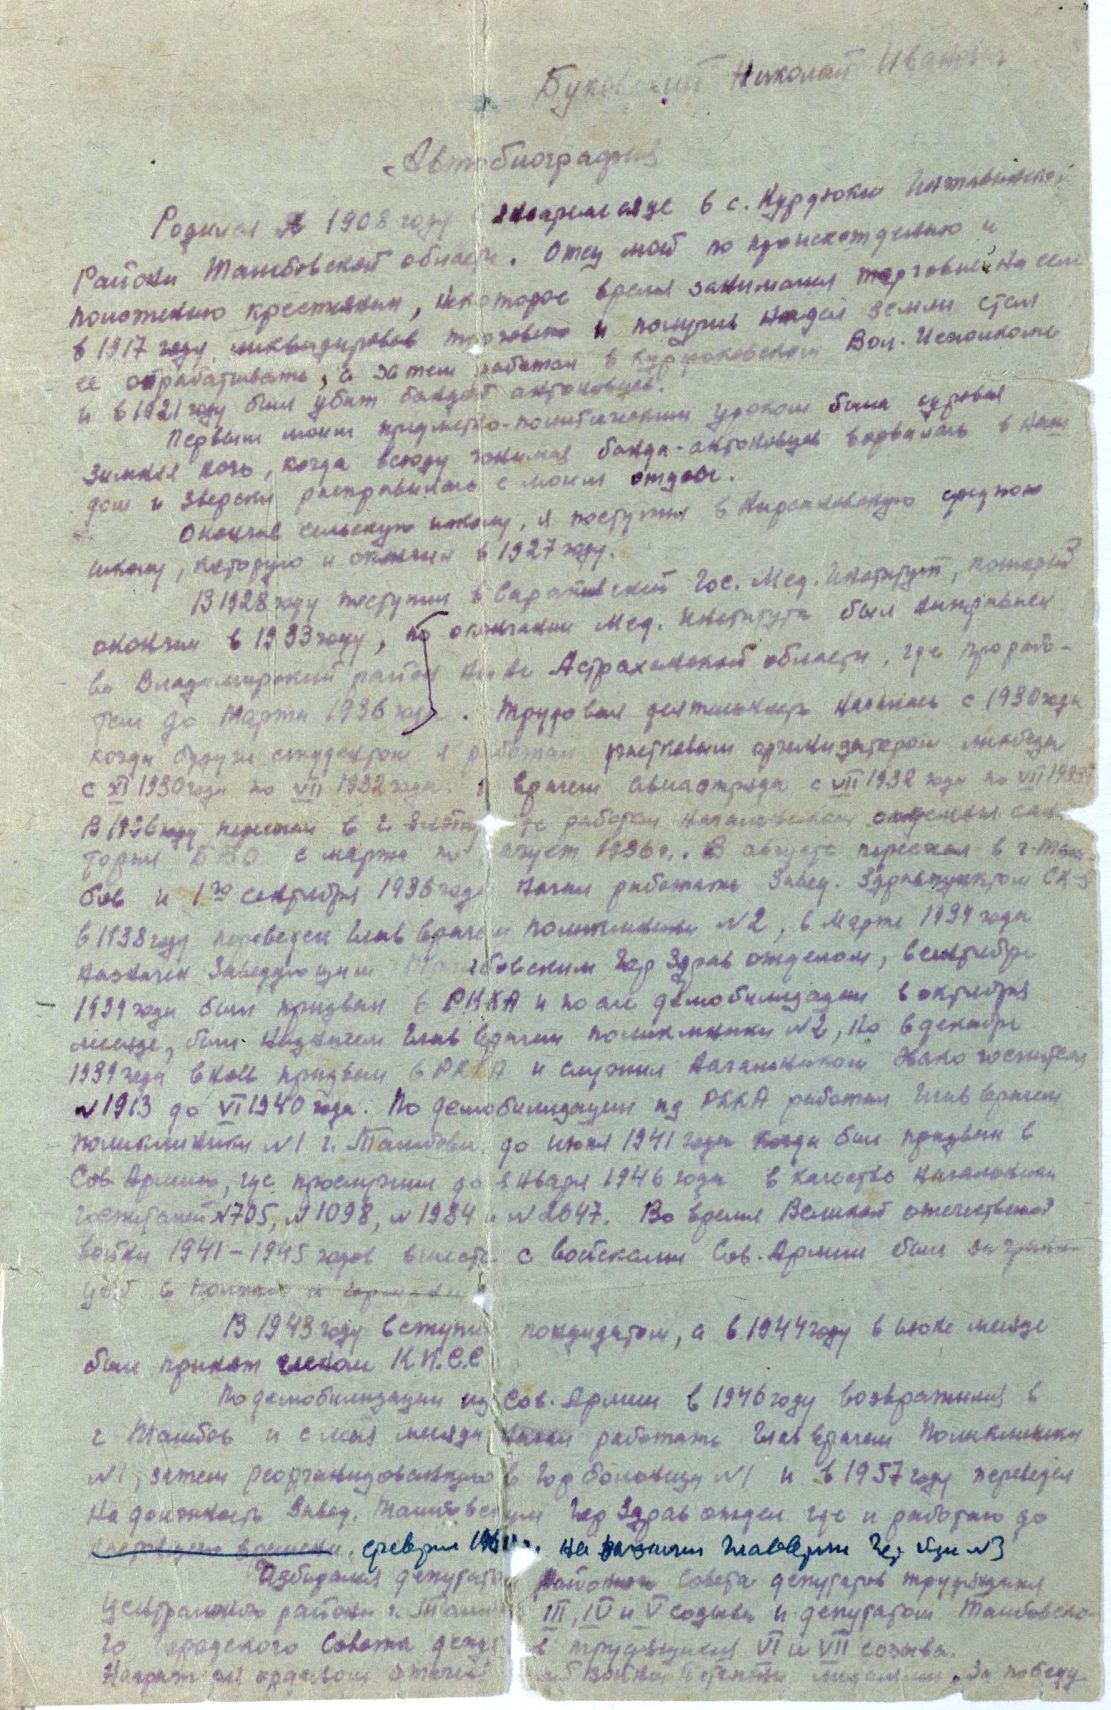 Буковский Николай Иванович
Автобиография
Родился я 1908 году январе месяце в с. Курдюки
Района Тамбовской области. Отец мой по происхождению и
положению крестьянин, некоторое время занимался торговлей на селе
в 1917 году ликвидировав торговлю и получив надел земли стал
её обрабатывать, а затем работал в Курдюковском Вол. Исполкоме
и в 1921 году был убит бандой антоновцев.
Первым моим предметно-политическим уроком была суровая
зимняя ночь, когда всюду банда-антоновцев ворвалась в наш
дом и зверски расправилась с моим отцом.
Окончив сельскую школу, я поступил в Кирсановскую среднюю
школу, которую и окончил в 1927 году.
В 1928 году поступил в Саратовский Гос. Мед. Институт, который
окончил в 1933 году, по окончании Мед. Института был направлен
во Владимирский район Астраханской области, где прорабо-
тал до марта 1936 года. Трудовая деятельность началась с 1930 года
когда будучи студентом я работал участковым организатором ликбеза
с XI 1930 года по VII 1932 года. врачем авиаотряда с VII 1932 года по VII 1933
В 1936 году переехал в г. работал начальником
с марта по август 1936 г. В августе переехал в г. Там-
бов и 1го сентября 1936 года начал работать Завед. Здравпунктом
в 1938 году переведен Глав врачем поликлиники N2, в марте 1939 года
назначен Заведующим Тамбовским Гор Здрав отделом, в сентябре
1939 года был призван в РККА и после демобилизации в октябре
месяце, был назначен Глав врачем поликлиники N2, но в декабре
1939 года вновь призван в РККА и служил начальником Эвако госпиталя
N1913 до VI 1940 года. По демобилизации из РККА работал Глав врачем
поликлиники N1 г. Тамбова до июня 1941 года когда был призван в
Сов. Армию, где прослужил до января 1946 года в качестве начальника
госпиталей N705, N1098, N1984 и N2647. Во время Великой отечественной
войны 1941-1945 годов вместе с войсками Сов. Армии был за грани-
цей в Польше и Германии
В 1943 году вступил кандидатом, а в 1944 году в июне месяце
был принят членом К.П.С.С
По демобилизации из Сов. Армии в 1946 году возвратился в
г. Тамбов и с мая месяца начал работать Глав врачем Поликлиники
N1, затем реорганизованную в Гор больницу N1 и в 1957 году переведен
на должность Завед. Тамбовским Гор Здрав отдел где и работаю до
настоящего времени. февраля на Главврача Гор б-цы N3
Избирался депутатом районного Совета депутатов трудящихся
Центрального района г. Тамбова III, IV и V созыва и депутатом Тамбовско-
го Городского Совета депутатов трудящихся VI и VII созыва.
Награжден орденом Отечественной войны II степени медалями „За победу